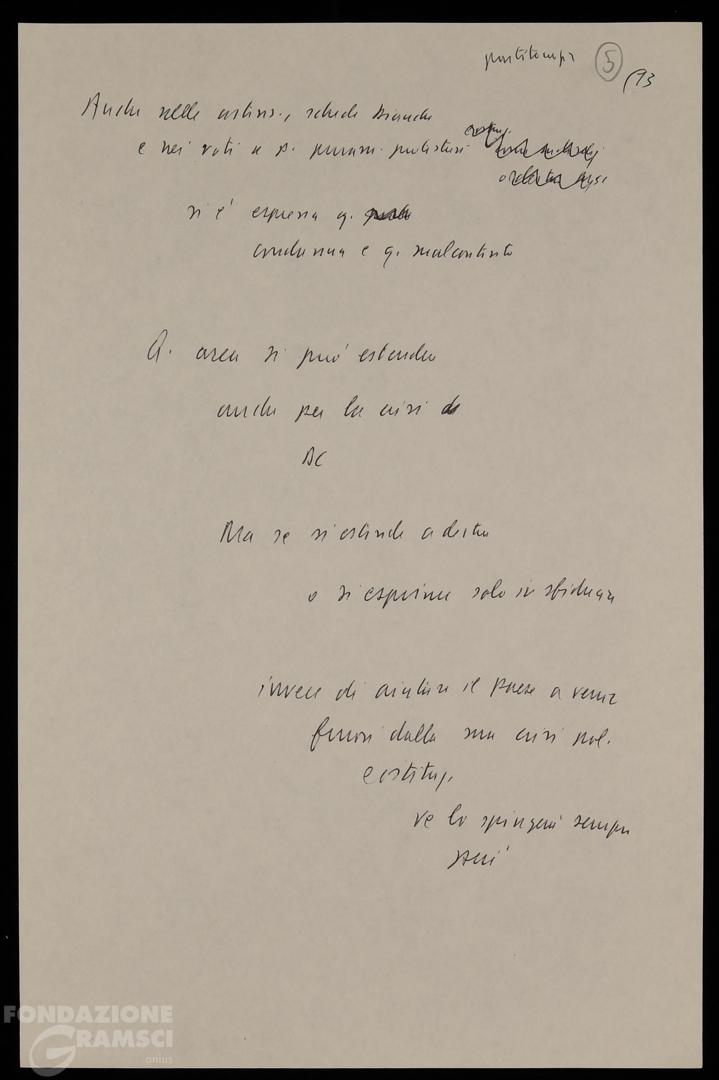 5
/93
Anche nelle astens., schede bianche
e nei voti a p. puram. protestari
si è espressa q.
condanna e q. malcontento
Q. area si può estendere
anche per la crisi
DC
Ma se si estende a destra
o si esprime solo in sfiducia
invece di aiutare il Paese a venir
fuori dalla sua crisi pol.
e costituz.
ve lo spingerà sempre
più
FONDAZIONE
GRAMSCI
onlus